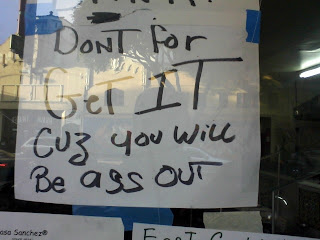 DONT FOR
GET "IT
CUZ YOU WILL
BE ASS OUT
asa Sanchez®